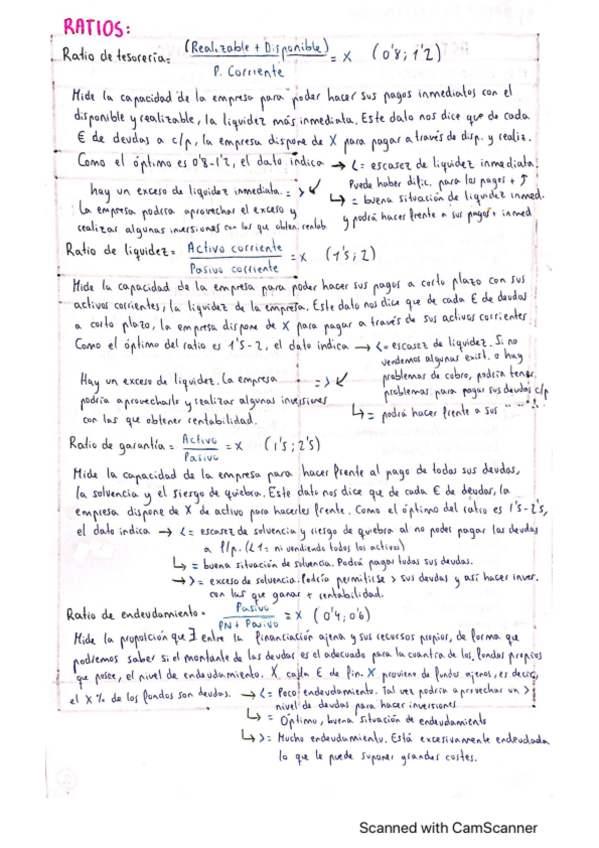 RATIOS:
Ratio de tesorería = (Realizable + Disponible) / P. Corriente = X (0'8 ; 1'2)
Mide la capacidad de la empresa para poder hacer sus pagos inmediatos con el
disponible y realizable, la liquidez más inmediata. Este dato nos dice que de cada
€ de deudas a c/p, la empresa dispone de X para pagar a través de disp. y realiz.
Como el óptimo es 0'8-1'2, el dato indica → < = escasez de liquidez inmediata.
Puede haber dific. para los pagos +
hay un exceso de liquidez inmediata. = >
↳ = buena situación de liquidez inmed.
La empresa podría aprovechar el exceso y
y podrá hacer frente a sus pagos + inmed
realizar algunas inversiones con las que obten. rentab.
Ratio de liquidez = Activo corriente / Pasivo corriente = X (1'5 ; 2)
Mide la capacidad de la empresa para poder hacer sus pagos a corto plazo con sus
activos corrientes, la liquidez de la empresa. Este dato nos dice que de cada € de deudas
a corto plazo, la empresa dispone de X para pagar a través de sus activos corrientes
Como el óptimo del ratio es 1'5-2, el dato indica → < = escasez de liquidez. Si no
vendemos algunas exist. o hay
Hay un exceso de liquidez. La empresa = >
problemas de cobro, podría tener
podría aprovecharlo y realizar algunas inversiones
problemas para pagar sus deudas c/p
con las que obtener rentabilidad.
↳ = podrá hacer frente a sus " "
Ratio de garantía = Activo / Pasivo = X (1'5 ; 2'5)
Mide la capacidad de la empresa para hacer frente al pago de todas sus deudas,
la solvencia y el siesgo de quiebra. Este dato nos dice que de cada € de deudas, la
empresa dispone de X de activo para hacerles frente. Como el óptimo del ratio es 1'5-2'5,
el dato indica → < = escasez de solvencia y riesgo de quiebra al no poder pagar las deudas
a l/p. (<1 = ni vendiendo todos los activos)
↳ = buena situación de solvencia. Podrá pagar todas sus deudas.
→ > = exceso de solvencia. Podría permitirse > sus deudas y así hacer inver.
con las que ganar + rentabilidad.
Ratio de endeudamiento = Pasivo / PN + Pasivo = X (0'4 ; 0'6)
Mide la proporción que ∃ entre la financiación ajena y sus recursos propios, de forma que
podremos saber si el montante de las deudas es el adecuado para la cuantía de los fondos propios
que posee, el nivel de endeudamiento. X cada € de fin. X proviene de fondos ajenos, es decir,
el X % de los fondos son deudas. → < = Poco endeudamiento. Tal vez podría aprovechar un >
nivel de deudas para hacer inversiones
↳ = Óptimo, buena situación de endeudamiento
↳ > = Mucho endeudamiento. Está excesivamente endeudada
lo que le puede suponer grandes costes.
Scanned with CamScanner